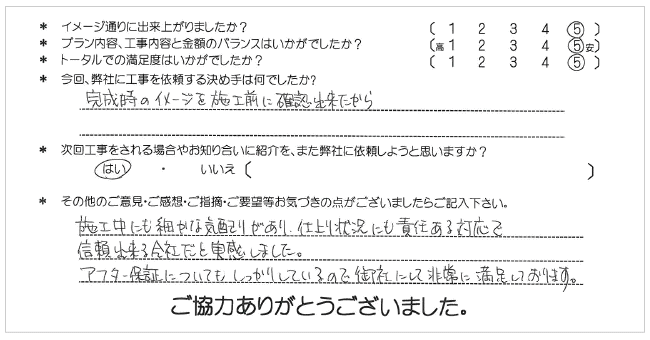 * イメージ通りに出来上がりましたか? ( 1 2 3 4 ⑤ )
* プラン内容、工事内容と金額のバランスはいかがでしたか? (高 1 2 3 4 ⑤安)
* トータルでの満足度はいかがでしたか? ( 1 2 3 4 ⑤ )
* 今回、弊社に工事を依頼する決め手は何でしたか?
完成時のイメージを施工前に確認出来たから
* 次回工事をされる場合やお知り合いに紹介を、また弊社に依頼しようと思いますか?
はい ・ いいえ ( )
* その他のご意見・ご感想・ご指摘・ご要望等お気づきの点がございましたらご記入下さい。
施工中にも細かな気配りがあり、仕上り状況にも責任ある対応で
信頼出来る会社だと実感しました。
アフター保証についてもしっかりしているので御社にして非常に満足しております。
ご協力ありがとうございました。